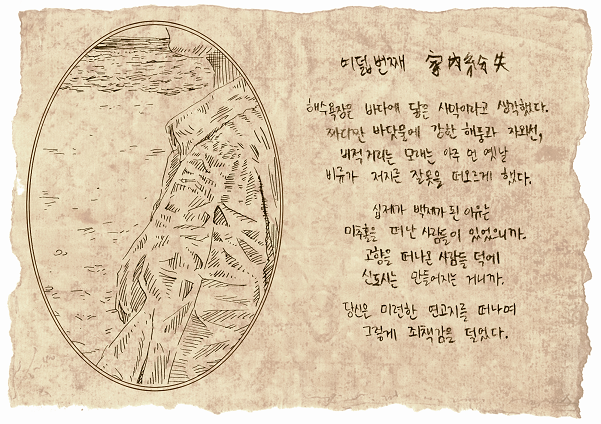 여덟번째 家内紛失
해수욕장은 바다에 닿은 사막이라고 생각했다.
짜디짠 바닷물에 강한 해풍과 자외선,
버적거리는 모래는 아주 먼 옛날
비류가 저지른 잘못을 떠오르게 했다.
십제가 백제가 된 이유는
미추홀을 떠난 사람들이 있었으니까.
고향을 떠나온 사람들 덕에
신도시는 만들어지는 거니까.
당신은 미련한 연고지를 떠나며
그렇게 죄책감을 덜었다.